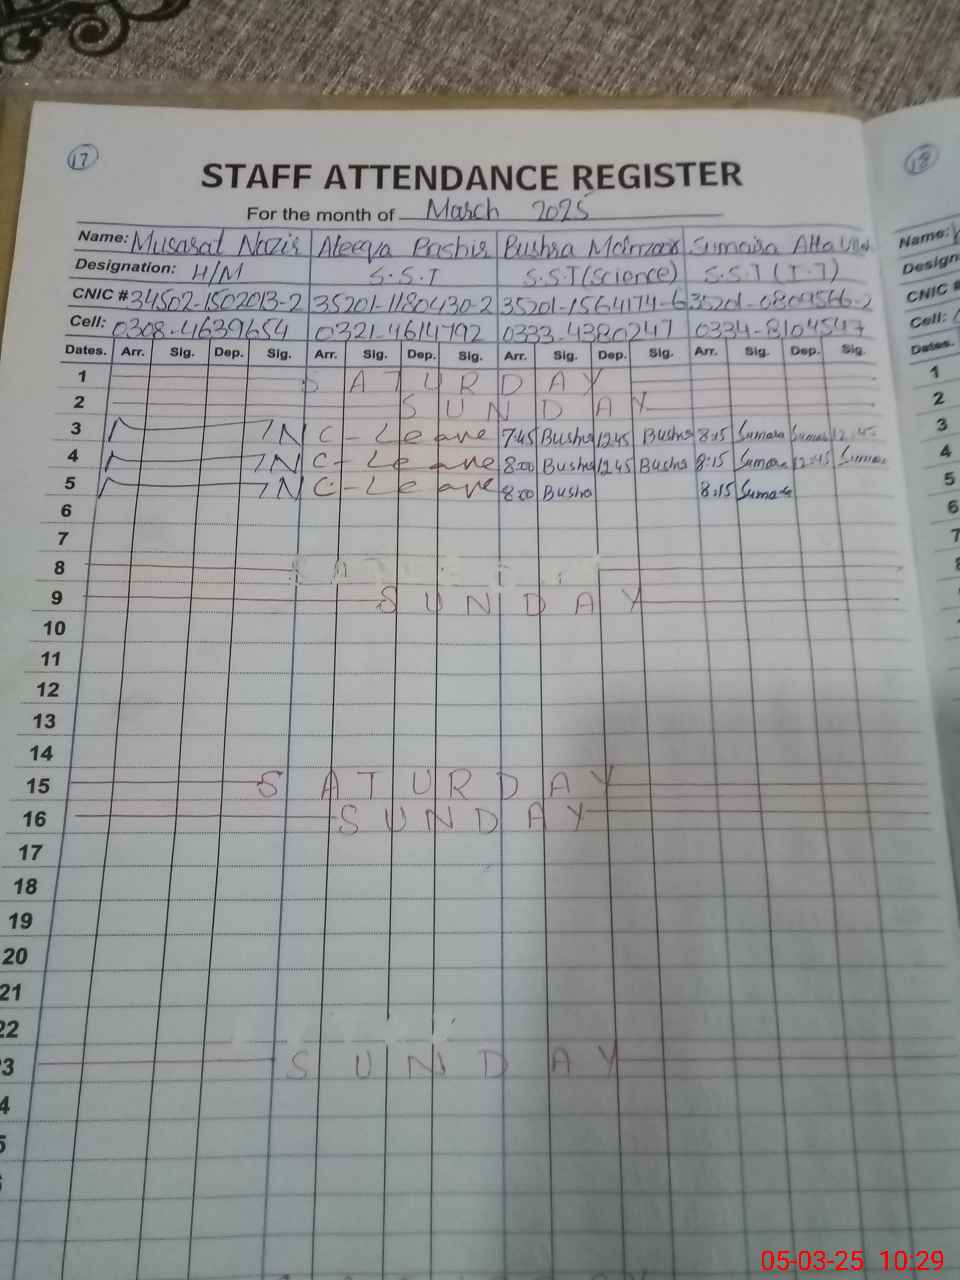 17
18
STAFF ATTENDANCE REGISTER
For the month of March 2025
Name: Musarat Nazir Ateeqa Bashir Bushra Sumaira Atta
Name:
Designation: H/M S.S.T S.S.T(Science) S.S.T (I.T)
Design
CNIC # 34502-1502013-2 35201-1180430-2 35201-1564174-6 35201-0809566-2
CNIC #
Cell: 0308-4639654 0321-4614792 0333-4380247 0334-8104547
Cell:
Dates. Arr. Sig. Dep. Sig. Arr. Sig. Dep. Sig. Arr. Sig. Dep. Sig. Arr. Sig. Dep. Sig.
Dates.
1 SATURDAY 1
2 SUNDAY 2
3 C-Leave 7:45 Bushra 12:45 Bushra 8:15 Sumaira Sumaira 12:45 3
4 C-Leave 8:00 Bushra 12:45 Bushra 8:15 Sumaira 12:45 Sumaira 4
5 C-Leave 8:00 Bushra 8:15 Sumaira 5
6 6
7 7
8
9 SUNDAY
10
11
12
13
14
15 SATURDAY
16 SUNDAY
17
18
19
20
21
22
3 SUNDAY
4
5
05-03-25 10:29